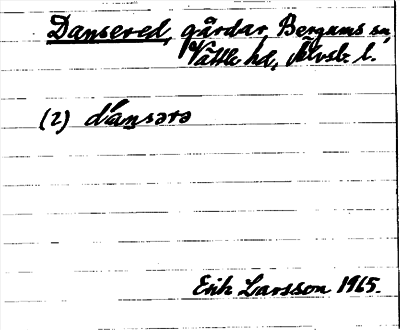 Dansered, gårdar, Bergums sn,
Vättle hd, Älvsb. l.
(2) dánsərə
Erik Larsson 1965.